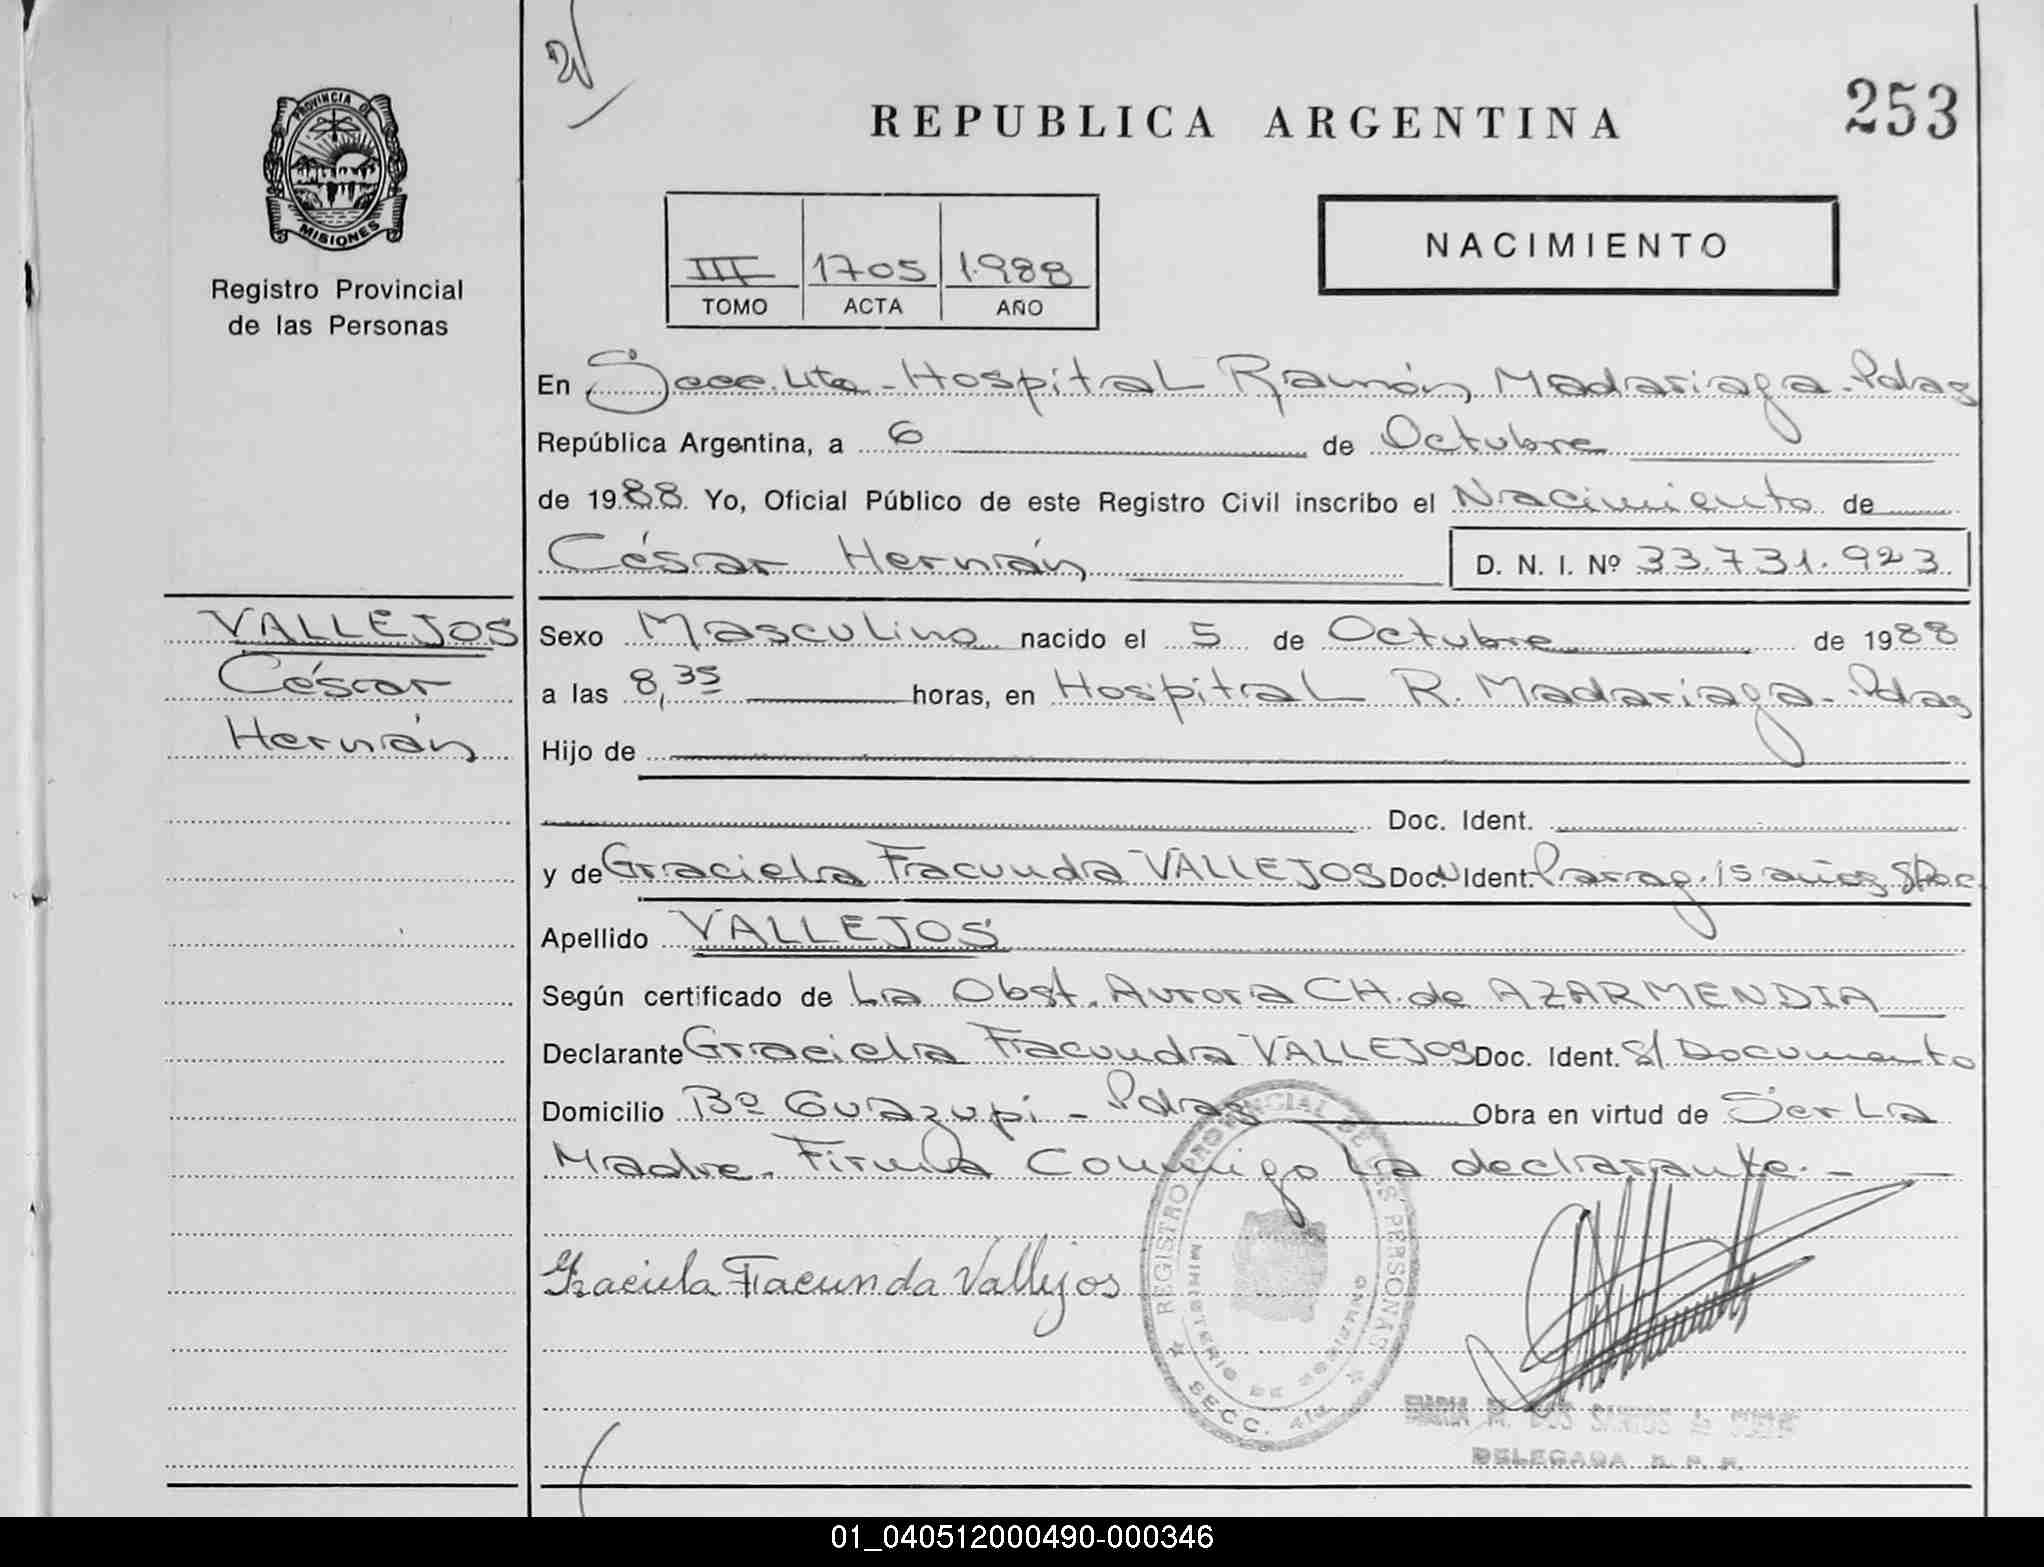 253
REPUBLICA ARGENTINA
PROVINCIA DE
MISIONES
Registro Provincial
de las Personas
NACIMIENTO
III 1705 1988
TOMO ACTA AÑO
En Secc. 4ta - Hospital Ramón Madariaga - Pdas
República Argentina, a 6 de Octubre
de 1988 Yo, Oficial Público de este Registro Civil inscribo el Nacimiento de
César Hernán D. N. I. Nº 33.731.923
VALLEJOS
César
Hernán
Sexo Masculino nacido el 5 de Octubre de 1988
a las 8,35 horas, en Hospital R. Madariaga - Pdas
Hijo de
Doc. Ident.
y de Graciela Facunda VALLEJOS Doc. Ident. Parag. 15 años S/Doc.
Apellido VALLEJOS
Según certificado de La Obst. Aurora CH. de AZARMENDIA
Declarante Graciela Facunda VALLEJOS Doc. Ident. S/ Documento
Domicilio Bº Guazupi - Pdas Obra en virtud de Ser La
Madre. Firma Conmigo La declarante. -
Graciela Facunda Vallejos
REGISTRO PROVINCIAL DE LAS PERSONAS
MINISTERIO DE GOBIERNO
SECC. 4ta.
DOS SANTOS de
DELEGADA R. P. P.
01_040512000490-000346